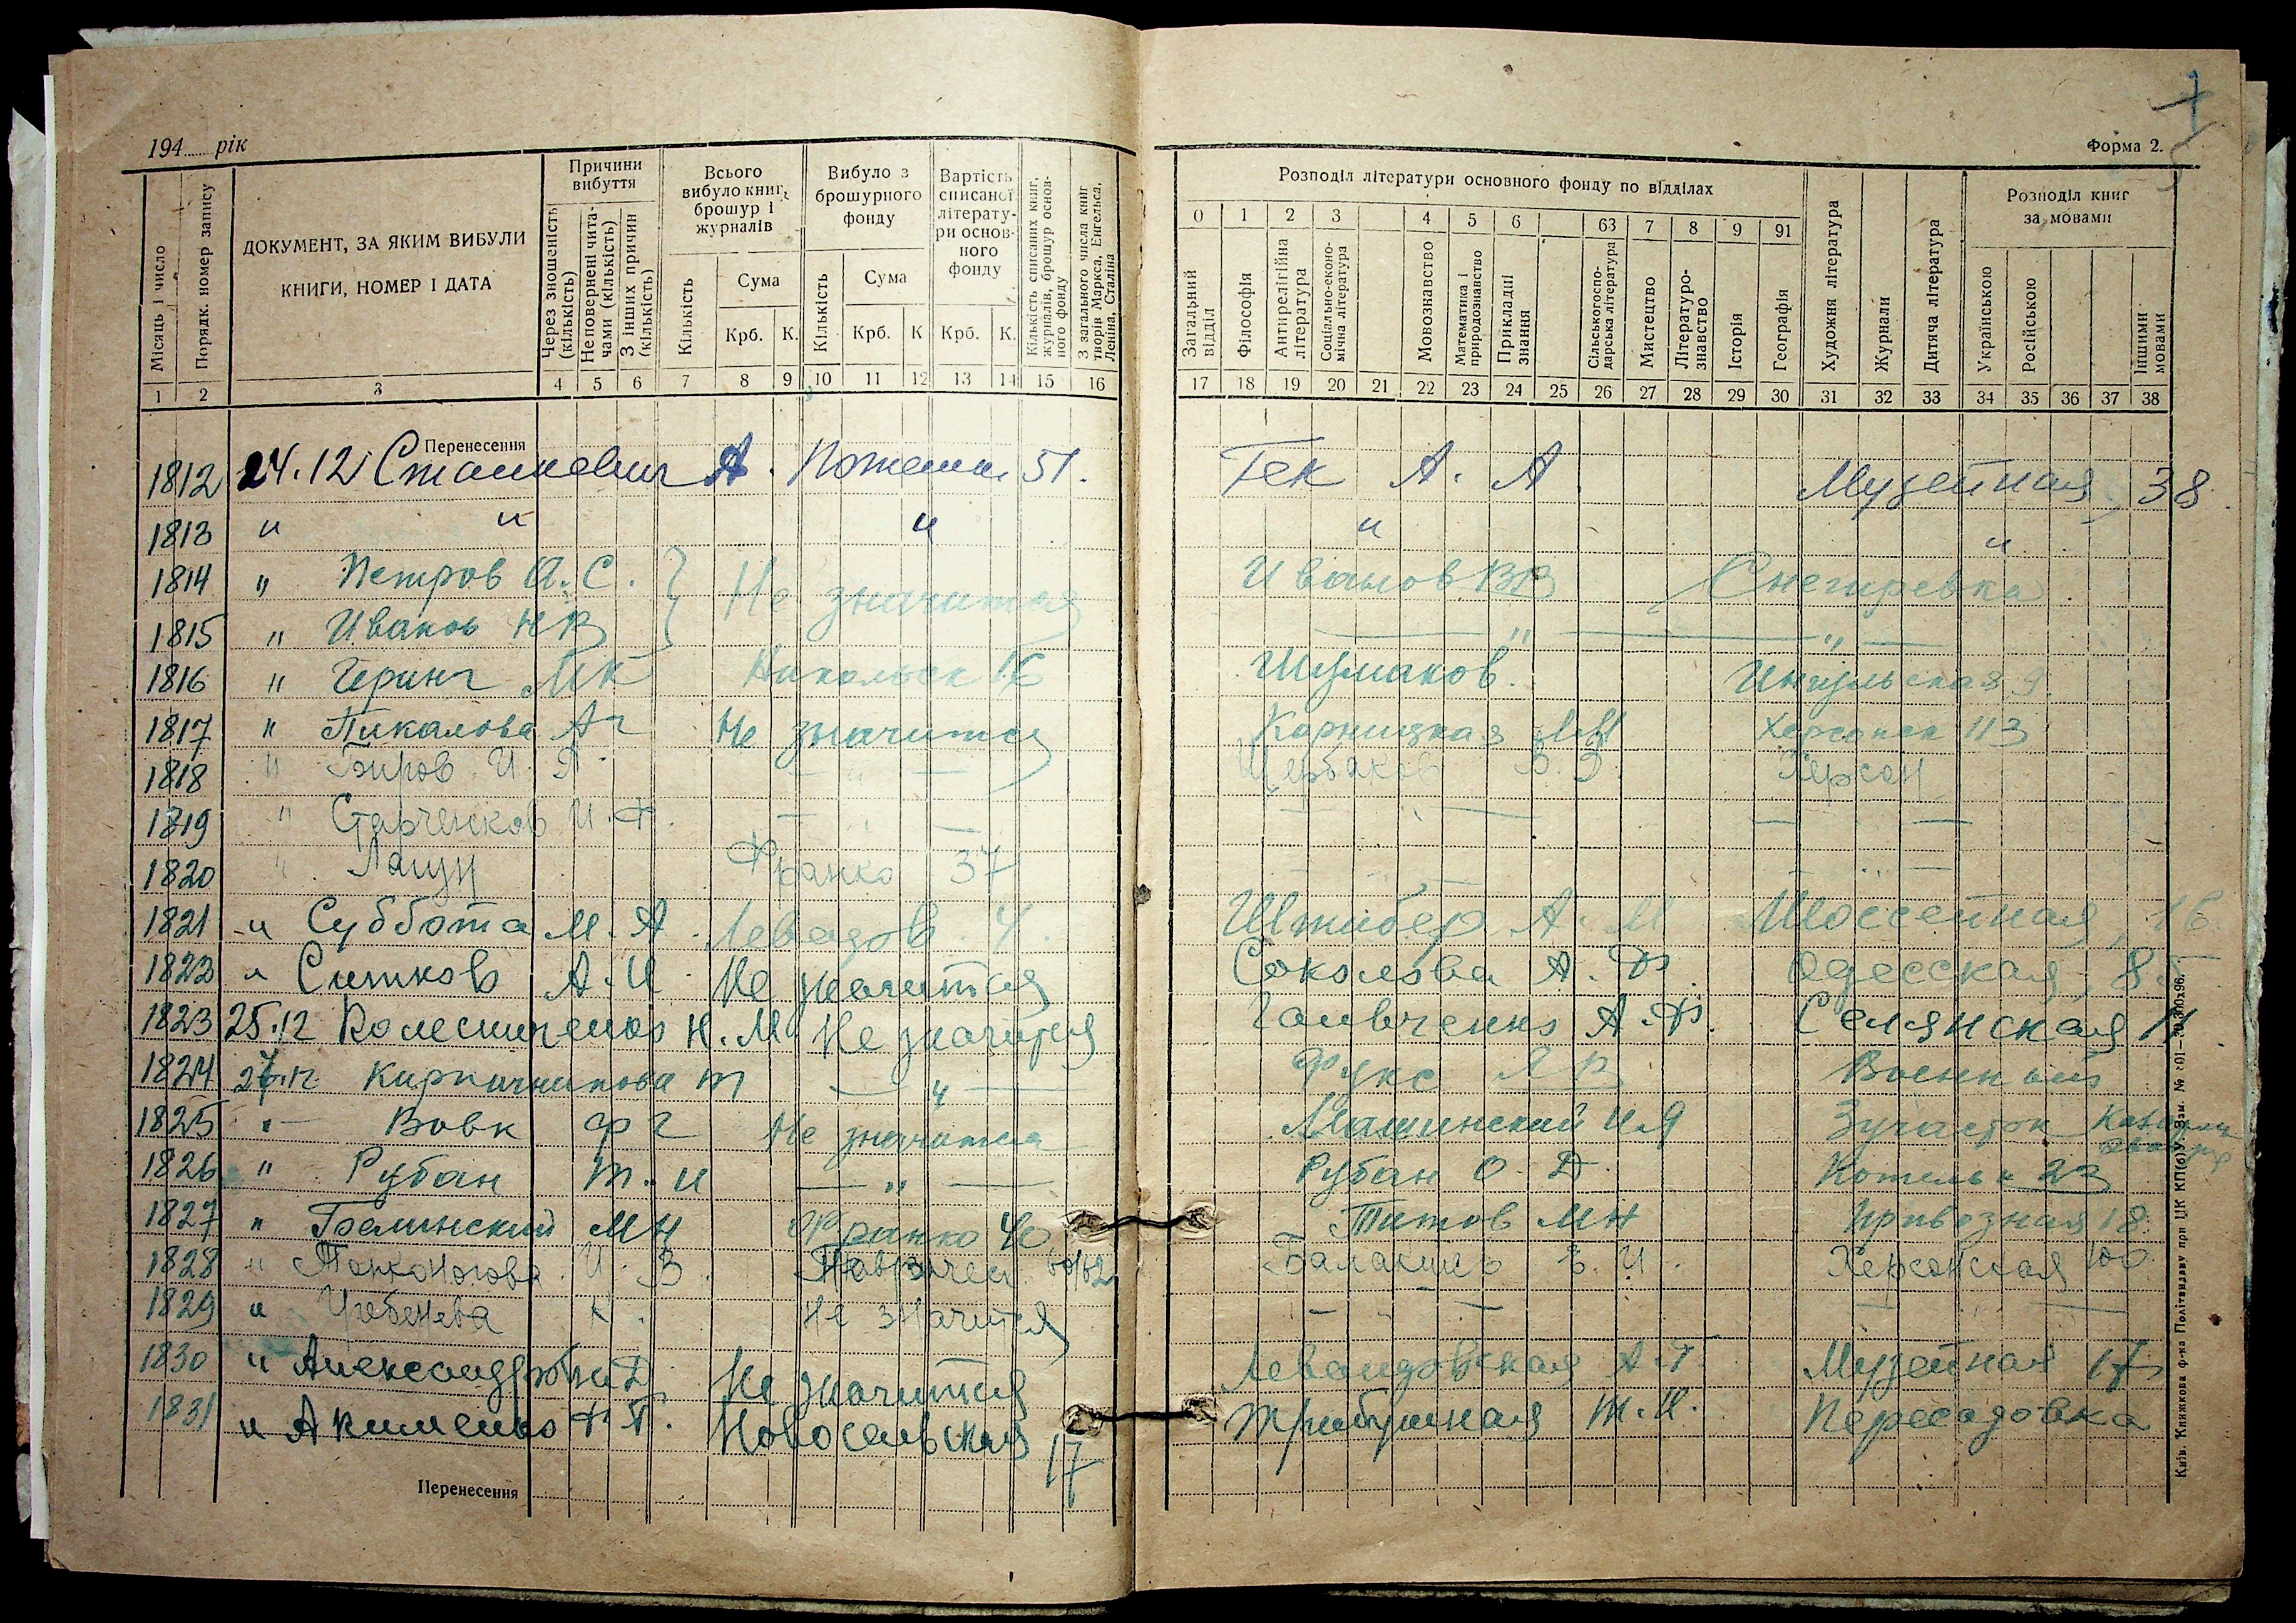 194 рік
Форма 2.
Місяць і число
Порядк. номер запису
ДОКУМЕНТ, ЗА ЯКИМ ВИБУЛИ
КНИГИ, НОМЕР І ДАТА
Причини вибуття
Через зношеність (кількість)
Неповернені читачами (кількість)
З інших причин (кількість)
Всього вибуло книг, брошур і журналів
Кількість
Сума
Крб. К.
Вибуло з брошурного фонду
Кількість
Сума
Крб. К
Вартість списаної літератури основного фонду
Крб. К.
Кількість списаних книг, журналів, брошур основного фонду
З загального числа книг творів Маркса, Енгельса, Леніна, Сталіна
Розподіл літератури основного фонду по відділах
0 1 2 3 4 5 6 63 7 8 9 91
Загальний відділ
Філософія
Антирелігійна література
Соціально-економічна література
Мовознавство
Математика і природознавство
Прикладні знання
Сільськогосподарська література
Мистецтво
Літературознавство
Історія
Географія
Художня література
Журнали
Дитяча література
Розподіл книг за мовами
Українською
Російською
Іншими мовами
1 2 3 4 5 6 7 8 9 10 11 12 13 14 15 16
17 18 19 20 21 22 23 24 25 26 27 28 29 30 31 32 33 34 35 36 37 38
Перенесення
1812 24.12 Станкевич А. 51. Гек А. А. Музейная, 38
1813 " " " " "
1814 " Петров А. С. } Не значится Иванов ВВ Снегиревка
1815 " Иванов НВ — " — — " —
1816 " Геринг МК Никольск 16 Шумаков. Ингульская 9.
1817 " Пикалова АГ Не значится Корницкая Херсонск 113
1818 " И. П. — " — Щербаков В. Э. Херсон
1819 " Старченков И. Ф. — " — — " — — " —
1820 " Лагун Франко 37 — " — — " —
1821 " Суббота М. А. Левадов. 4. Штибер А. М Шоссейная, 16
1822 " Ситков А. И. Не значится Соколова А. Ф. Одесская, 85
1823 25.12 Колесниченко Н. М Не значится Ганвченко А. Ф. Селянская 11
1824 27.12 Кирпичникова Т — " — Фукс Я Р Военный
1825 " Вовк Ф Г Не значится Машинский И Я 3 участок
1826 " Рубан Т. И — " — Рубан О. Д. Котельн 23
1827 " Белинский МН Франко 40 Титов МН Привозная 18
1828 " Тонконогова И. В. Балакшю Е. И. Херсонская 100
1829 " К. Не значится — " — — " —
1830 " Не значится Левандовская А. Г. Музейная 17
1831 " Акименко Ф. Т. Новосельская 17 Трибушная Т. И. Пересадовка
Перенесення
Київ. Книжкова ф-ка Політвидаву при ЦК КП(б)У. Зам. №